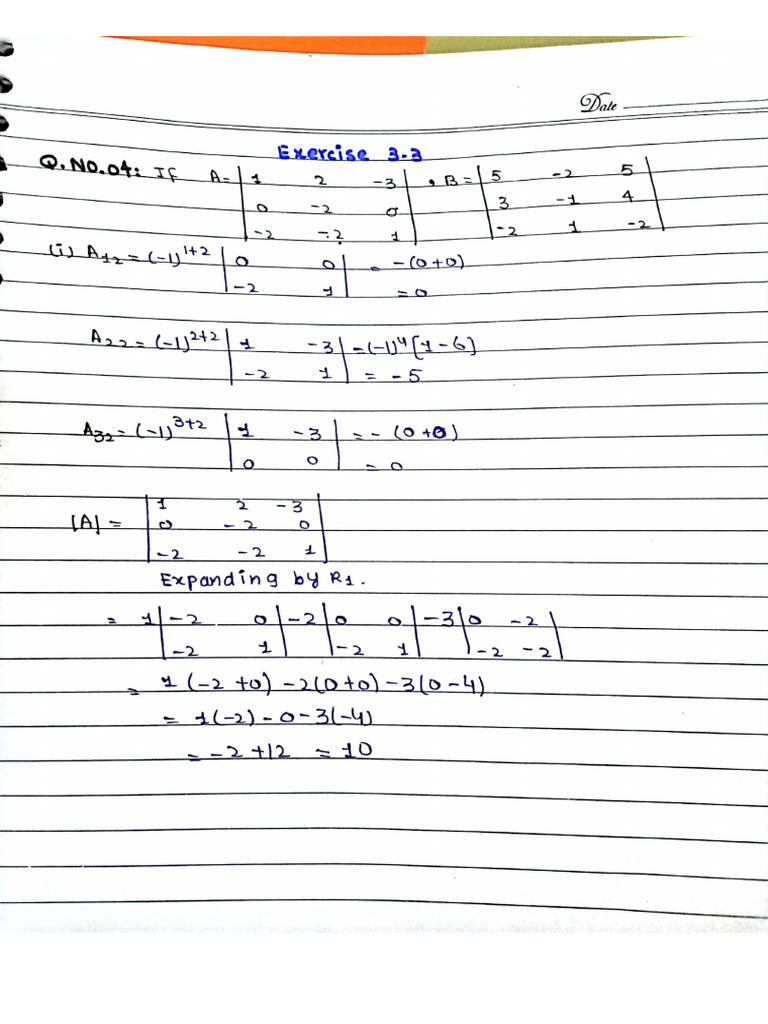 Date
Exercise 3.3
Q.NO.04: If A= | 1 2 -3 | , B = | 5 -2 5 |
| 0 -2 0 | | 3 -1 4 |
| -2 -2 1 | | -2 1 -2 |
(i) A12 = (-1)^1+2 | 0 0 | = -(0+0)
| -2 1 | = 0
A22 = (-1)^2+2 | 1 -3 | = (-1)^4 [1-6]
| -2 1 | = -5
A32 = (-1)^3+2 | 1 -3 | = - (0+0)
| 0 0 | = 0
|A| = | 1 2 -3 |
| 0 -2 0 |
| -2 -2 1 |
Expanding by R1.
= 1 | -2 0 | -2 | 0 0 | -3 | 0 -2 |
| -2 1 | | -2 1 | | -2 -2 |
= 1(-2+0) -2(0+0) -3(0-4)
= 1(-2) -0 -3(-4)
= -2+12 = 10